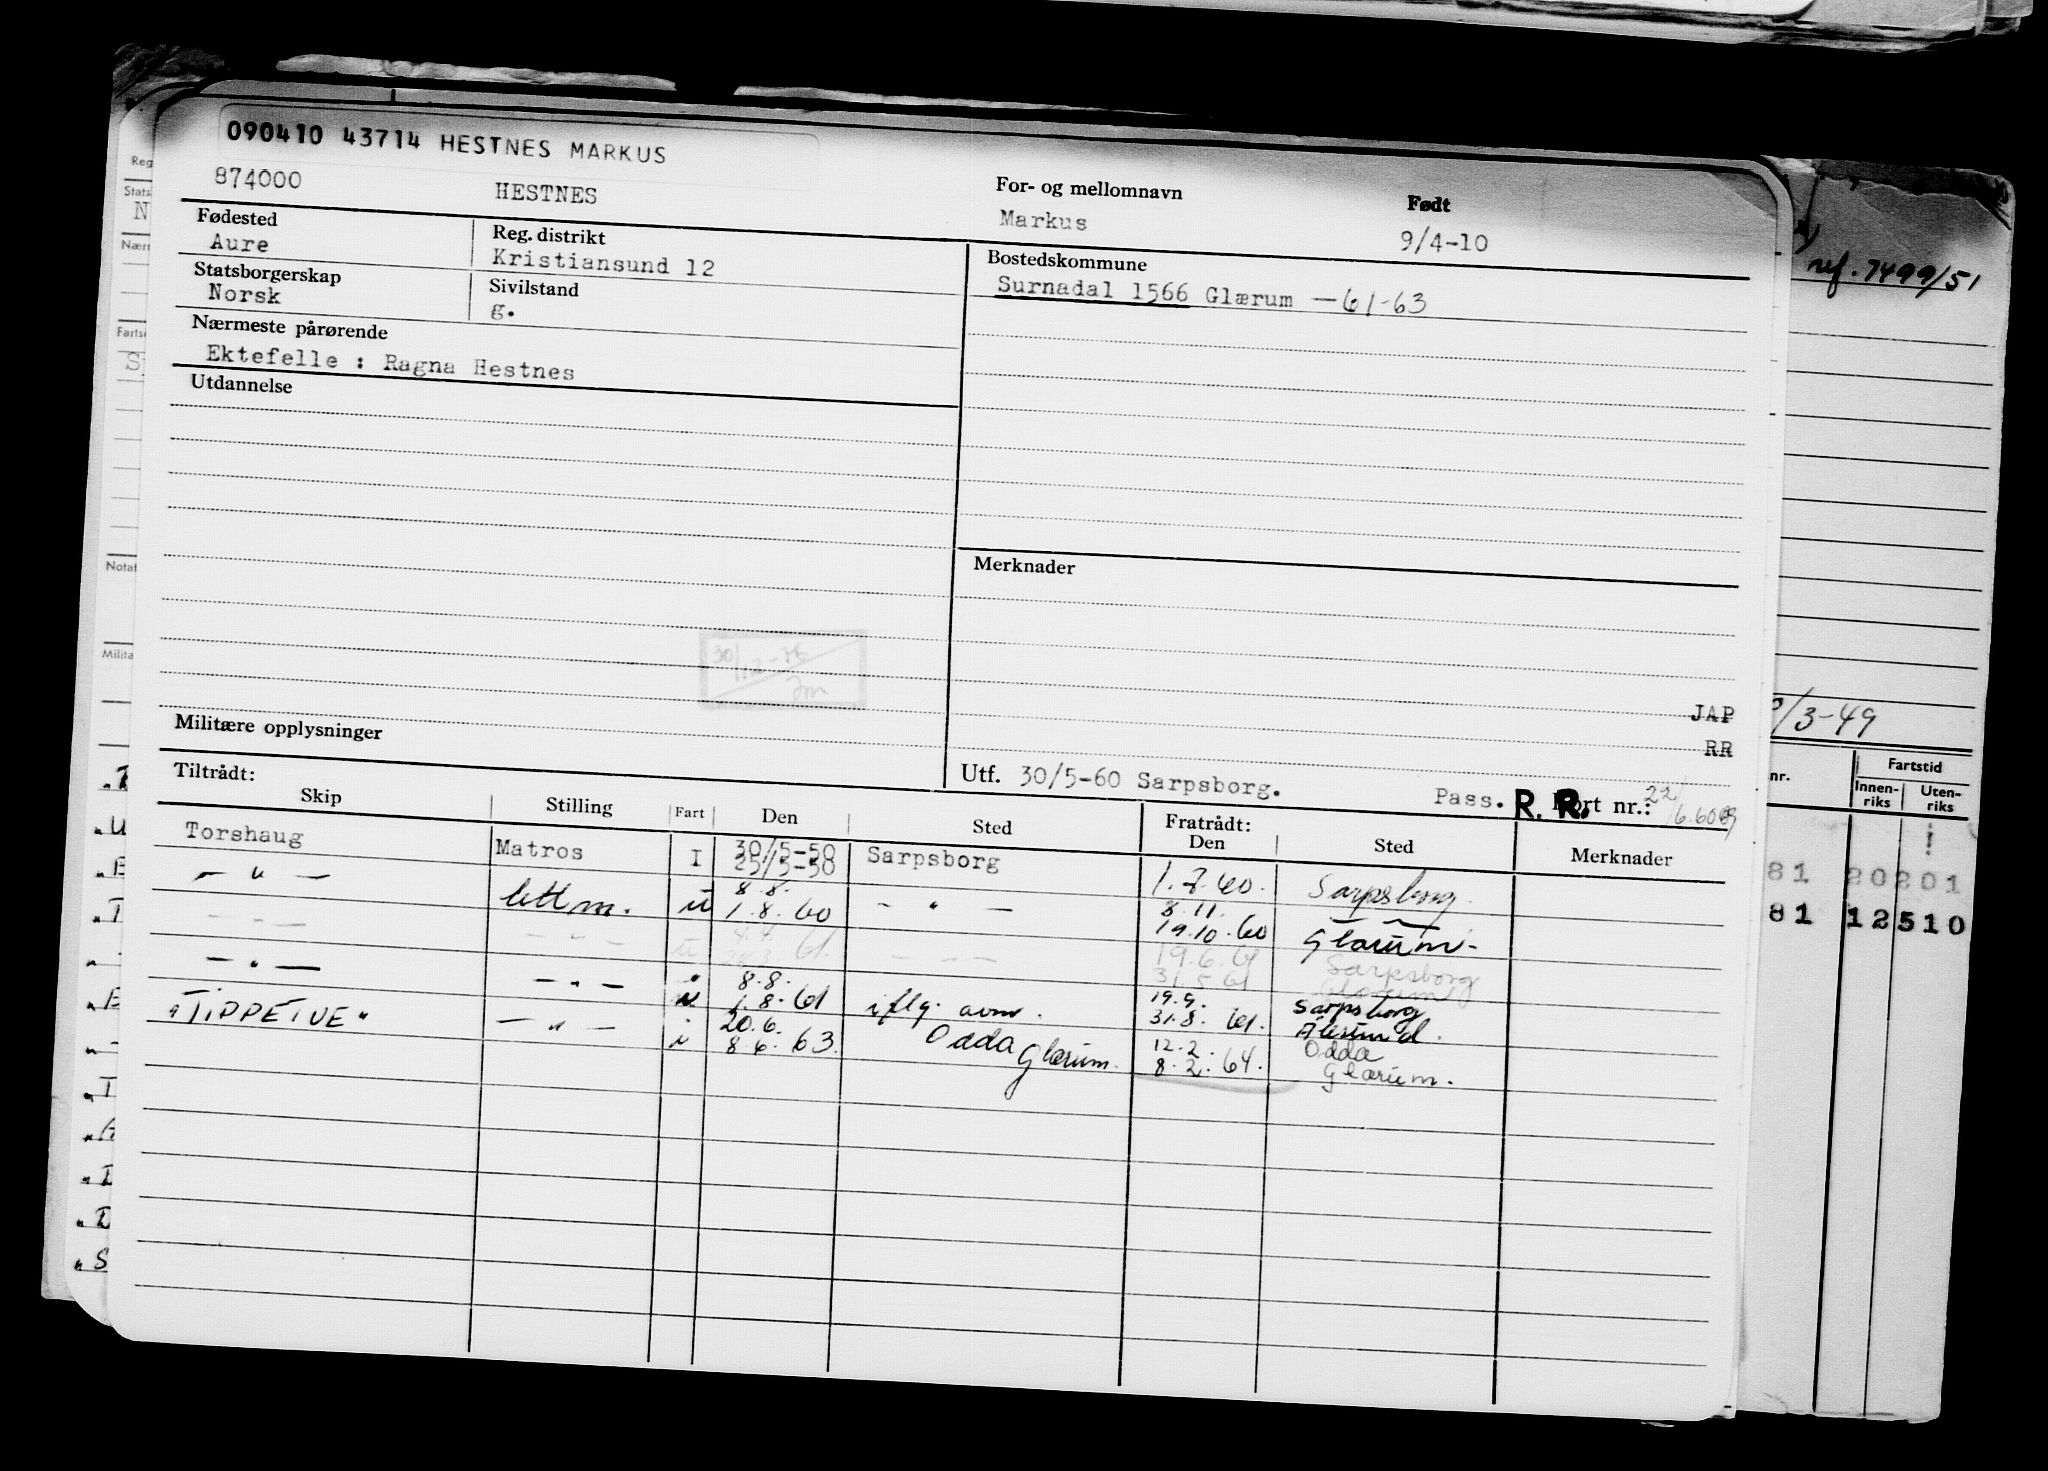 090410 43714 HESTNES MARKUS
874000 HESTNES For- og mellomnavn Markus Født 9/4-10
Fødested Aure Reg. distrikt Kristiansund 12
Bostedskommune
Surnadal 1566 Glærum — 61-63
Statsborgerskap Norsk Sivilstand g.
Nærmeste pårørende
Ektefelle : Ragna Hestnes
Utdannelse
Merknader
30/12-75
JAP
RR
Militære opplysninger
Utf. 30/5-60 Sarpsborg. Pass. R. R. Kort nr.: 22/6.60
Tiltrådt: Fratrådt:
Skip Stilling Fart Den Sted Den Sted Merknader
Torshaug Matros I 30/5-50 25/5-50 Sarpsborg 1.7.60. Sarpsborg.
— " — lettm. u 8.8. 1.8.60 — " — 8.11. 19.10.60 Glærum -
— " — — " — u 4.4. 61. — " — 19.6.61 31.5.61 Sarpsborg Glærum
— " — — " — u 8.8. 1.8.61 iflg. avm. 19.9. 31.8.61. Sarpsborg Ålesund.
"TIPPETUE" — " — i 20.6. 8.6.63. Odda Glærum. 12.2. 8.2.64. Odda Glærum.
ref. 7499/51
/3-49
nr. Fartstid
Innenriks Utenriks
81 20201
81 12510
Reg
Stats
N
Nærn
Fartse
S
Notat
Milita